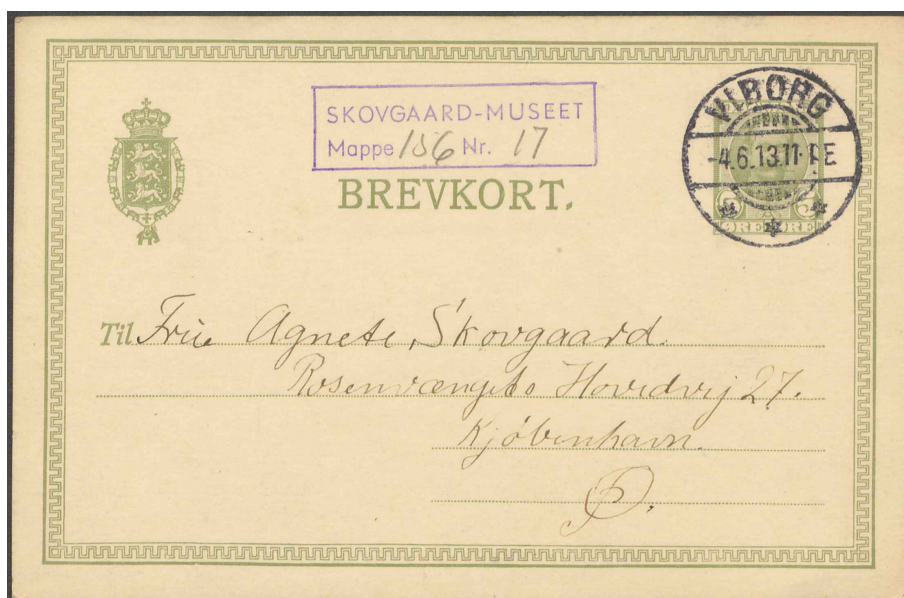 SKOVGAARD-MUSEET
Mappe 156 Nr. 17
BREVKORT.
VIBORG
-4.6.13.11-
5 ØRE
Til Frue Agnete Skovgaard.
Rosenvængets Hovedvej 27.
Kjøbenhavn.
Ø.